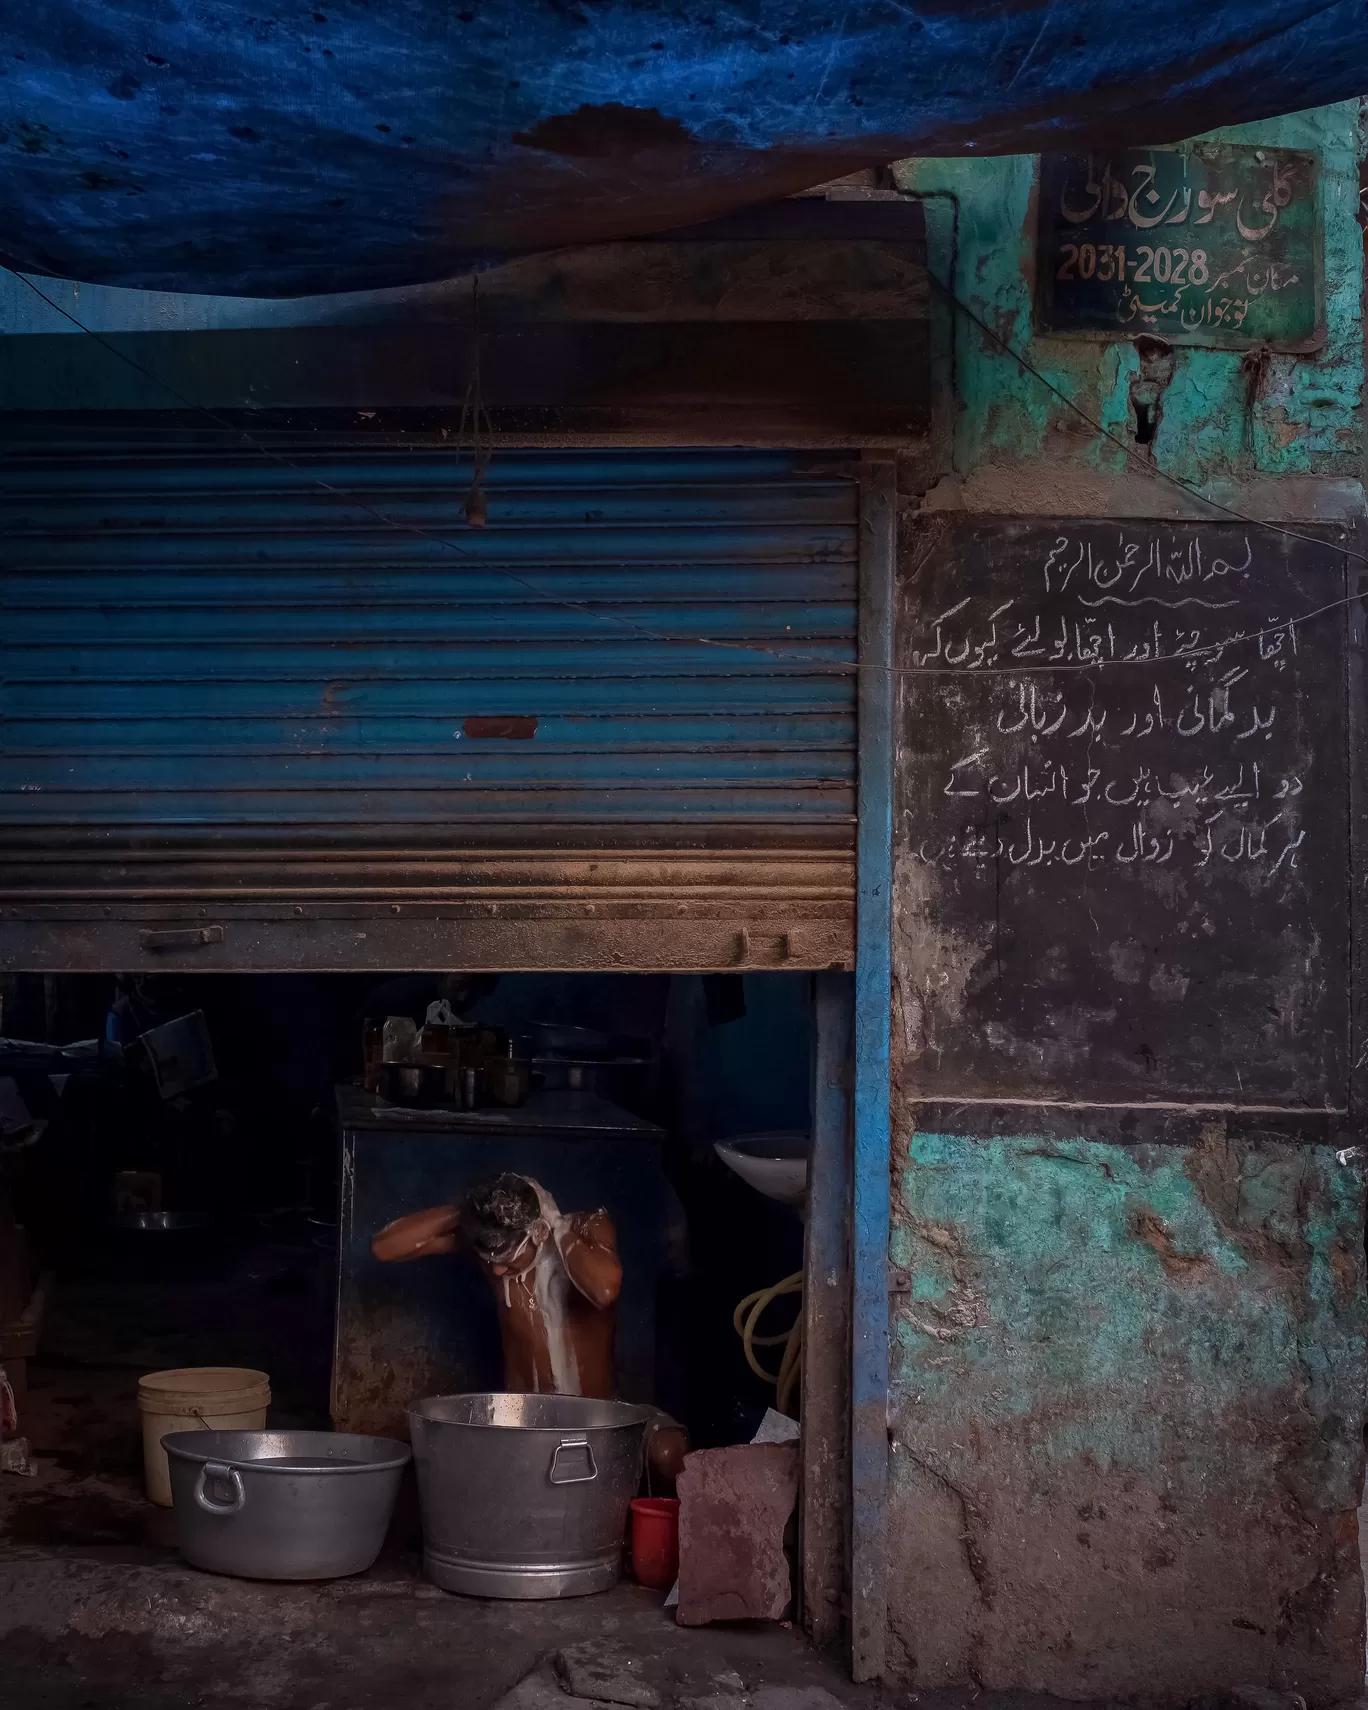 گلی سورج والی
مکان نمبر 2031-2028
نوجوان کمیٹی
بسم اللہ الرحمٰن الرحیم
اچّھا سوچئے اور اچّھا بولئے کیوں کہ
بد گمانی اور بد زبانی
دو ایسے عیب ہیں جو انسان کے
ہر کمال کو زوال میں بدل دیتے ہیں